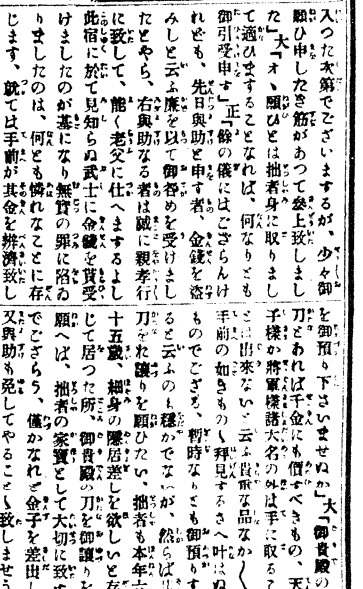 入つた次第でございまするが、少々御
願ひ申したき筋があつて參上致しまし
た」大「オヽ願ひとは拙者身に取りまし
て適ひまする​ことなれば、何なりとも
御引受申す」正「餘の儀にはござらんけ
れども、先日與助と申す者、金錢を盜
みしと云ふ廉を以て御咎めを受けまし
たとやら、右與助なる者は誠に親孝行
に致して、能く老父に仕へまするよし
此宿に於て見知らぬ武士に金錢を貰受
けましたのが基になり無實の罪に陷ゐ
りましたのは、何とも憐れなことに存
じます、就ては手前が其金を辨濟致し
を御預り下さいませぬか」大「御貴殿の
刀とあれば千金にも價すべきもの、天
子樣か將軍樣諸大名の外は手に取るこ
とは出來ないと云ふ貴重な品なか〳〵
手前の如きもの〳〵拜見するさへ叶はぬ
ものでござる、暫時なりとも御預りす
ると云ふのも穩かでないが、然らば此
刀をお讓りを願ひたい、拙者も本年六
十五歲、細身の隱居差しを欲しいと存
じて居つた所、御貴殿の刀を御讓りを
願へば、拙者の家寶として大切に致す
でござらう、僅かなれど金子を差出し
又與助も免してやること〳〵致しませう